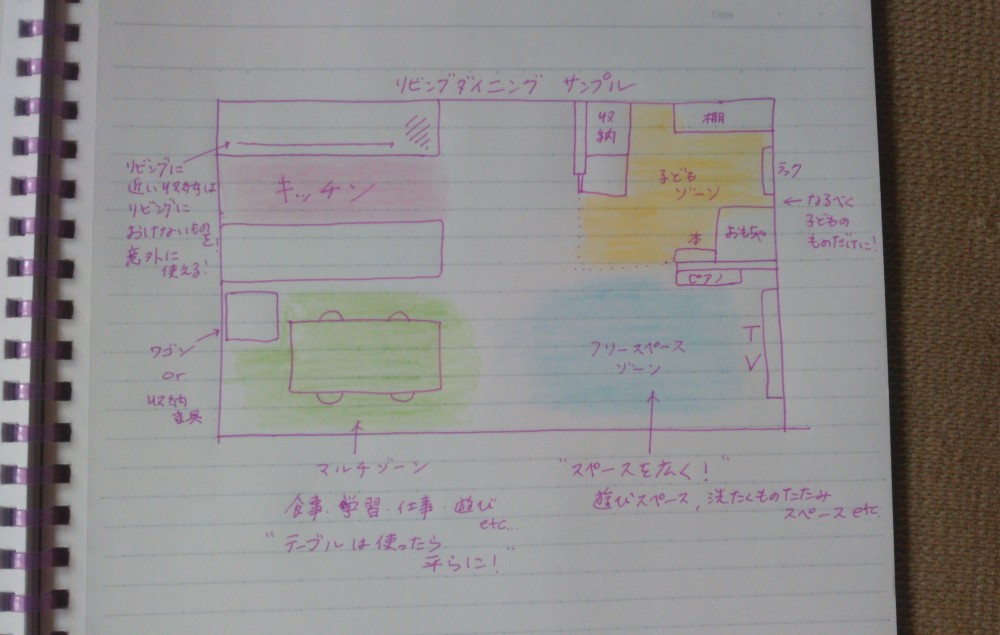 Date
リビングダイニング サンプル
収
納
棚
ラック
子ども
ゾーン
本
おもちゃ
ピアノ
← なるべく
子どもの
ものだけに!
キッチン
リビングに
近い収納は
リビングに
おけないもの
を!
意外に
使える!
ワゴン
or
収納
家具
フリースペース
ゾーン
T
V
マルチゾーン
食事・学習・仕事・遊び
etc...
"テーブルは使ったら
平らに!"
"スペースを広く!"
遊びスペース、洗たくものたたみ
スペース etc.